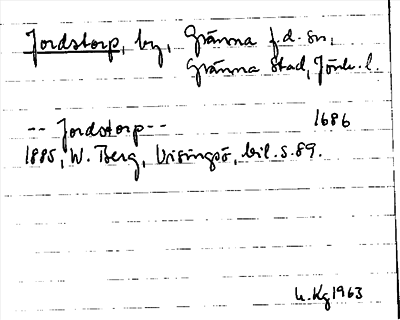 Jordstorp, by, Gränna f.d. sn,
Gränna stad, Jönk. l.
-- Jordstorp -- 1686
1885, W. Berg, Visingsö, bil. s. 89.
U. Kg 1963